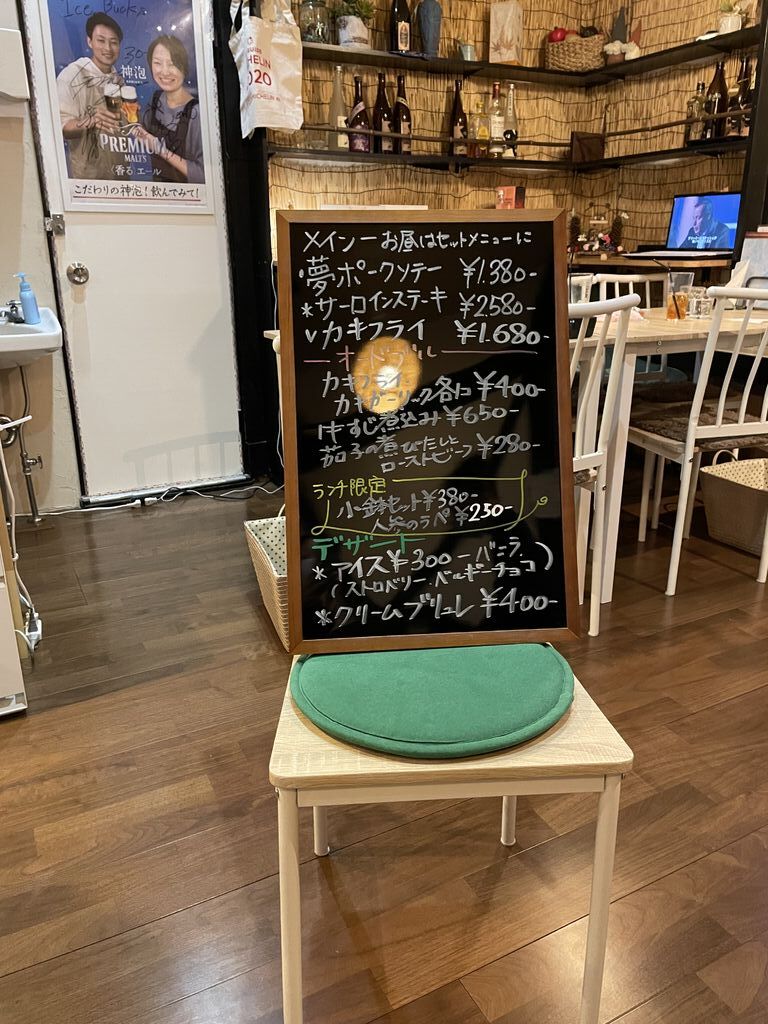 Ice Bucks
神泡
PREMIUM
MALT'S
〈香る〉エール
こだわりの神泡!飲んでみて!
2020
メインーお昼はセットメニューに
・夢ポークソテー ¥1.380-
*サーロインステーキ ¥2.580-
vカキフライ ¥1.680-
オードブル
カキフライ
カキガーリック各1コ¥400-
牛すじ煮込み¥650-
茄子の煮びたしと
ローストビーフ ¥280-
ランチ限定
小鉢セット¥380-
人参のラペ ¥250-
デザート
*アイス¥300-バニラ
(ストロベリー・ベルギーチョコ)
*クリームブリュレ ¥400-